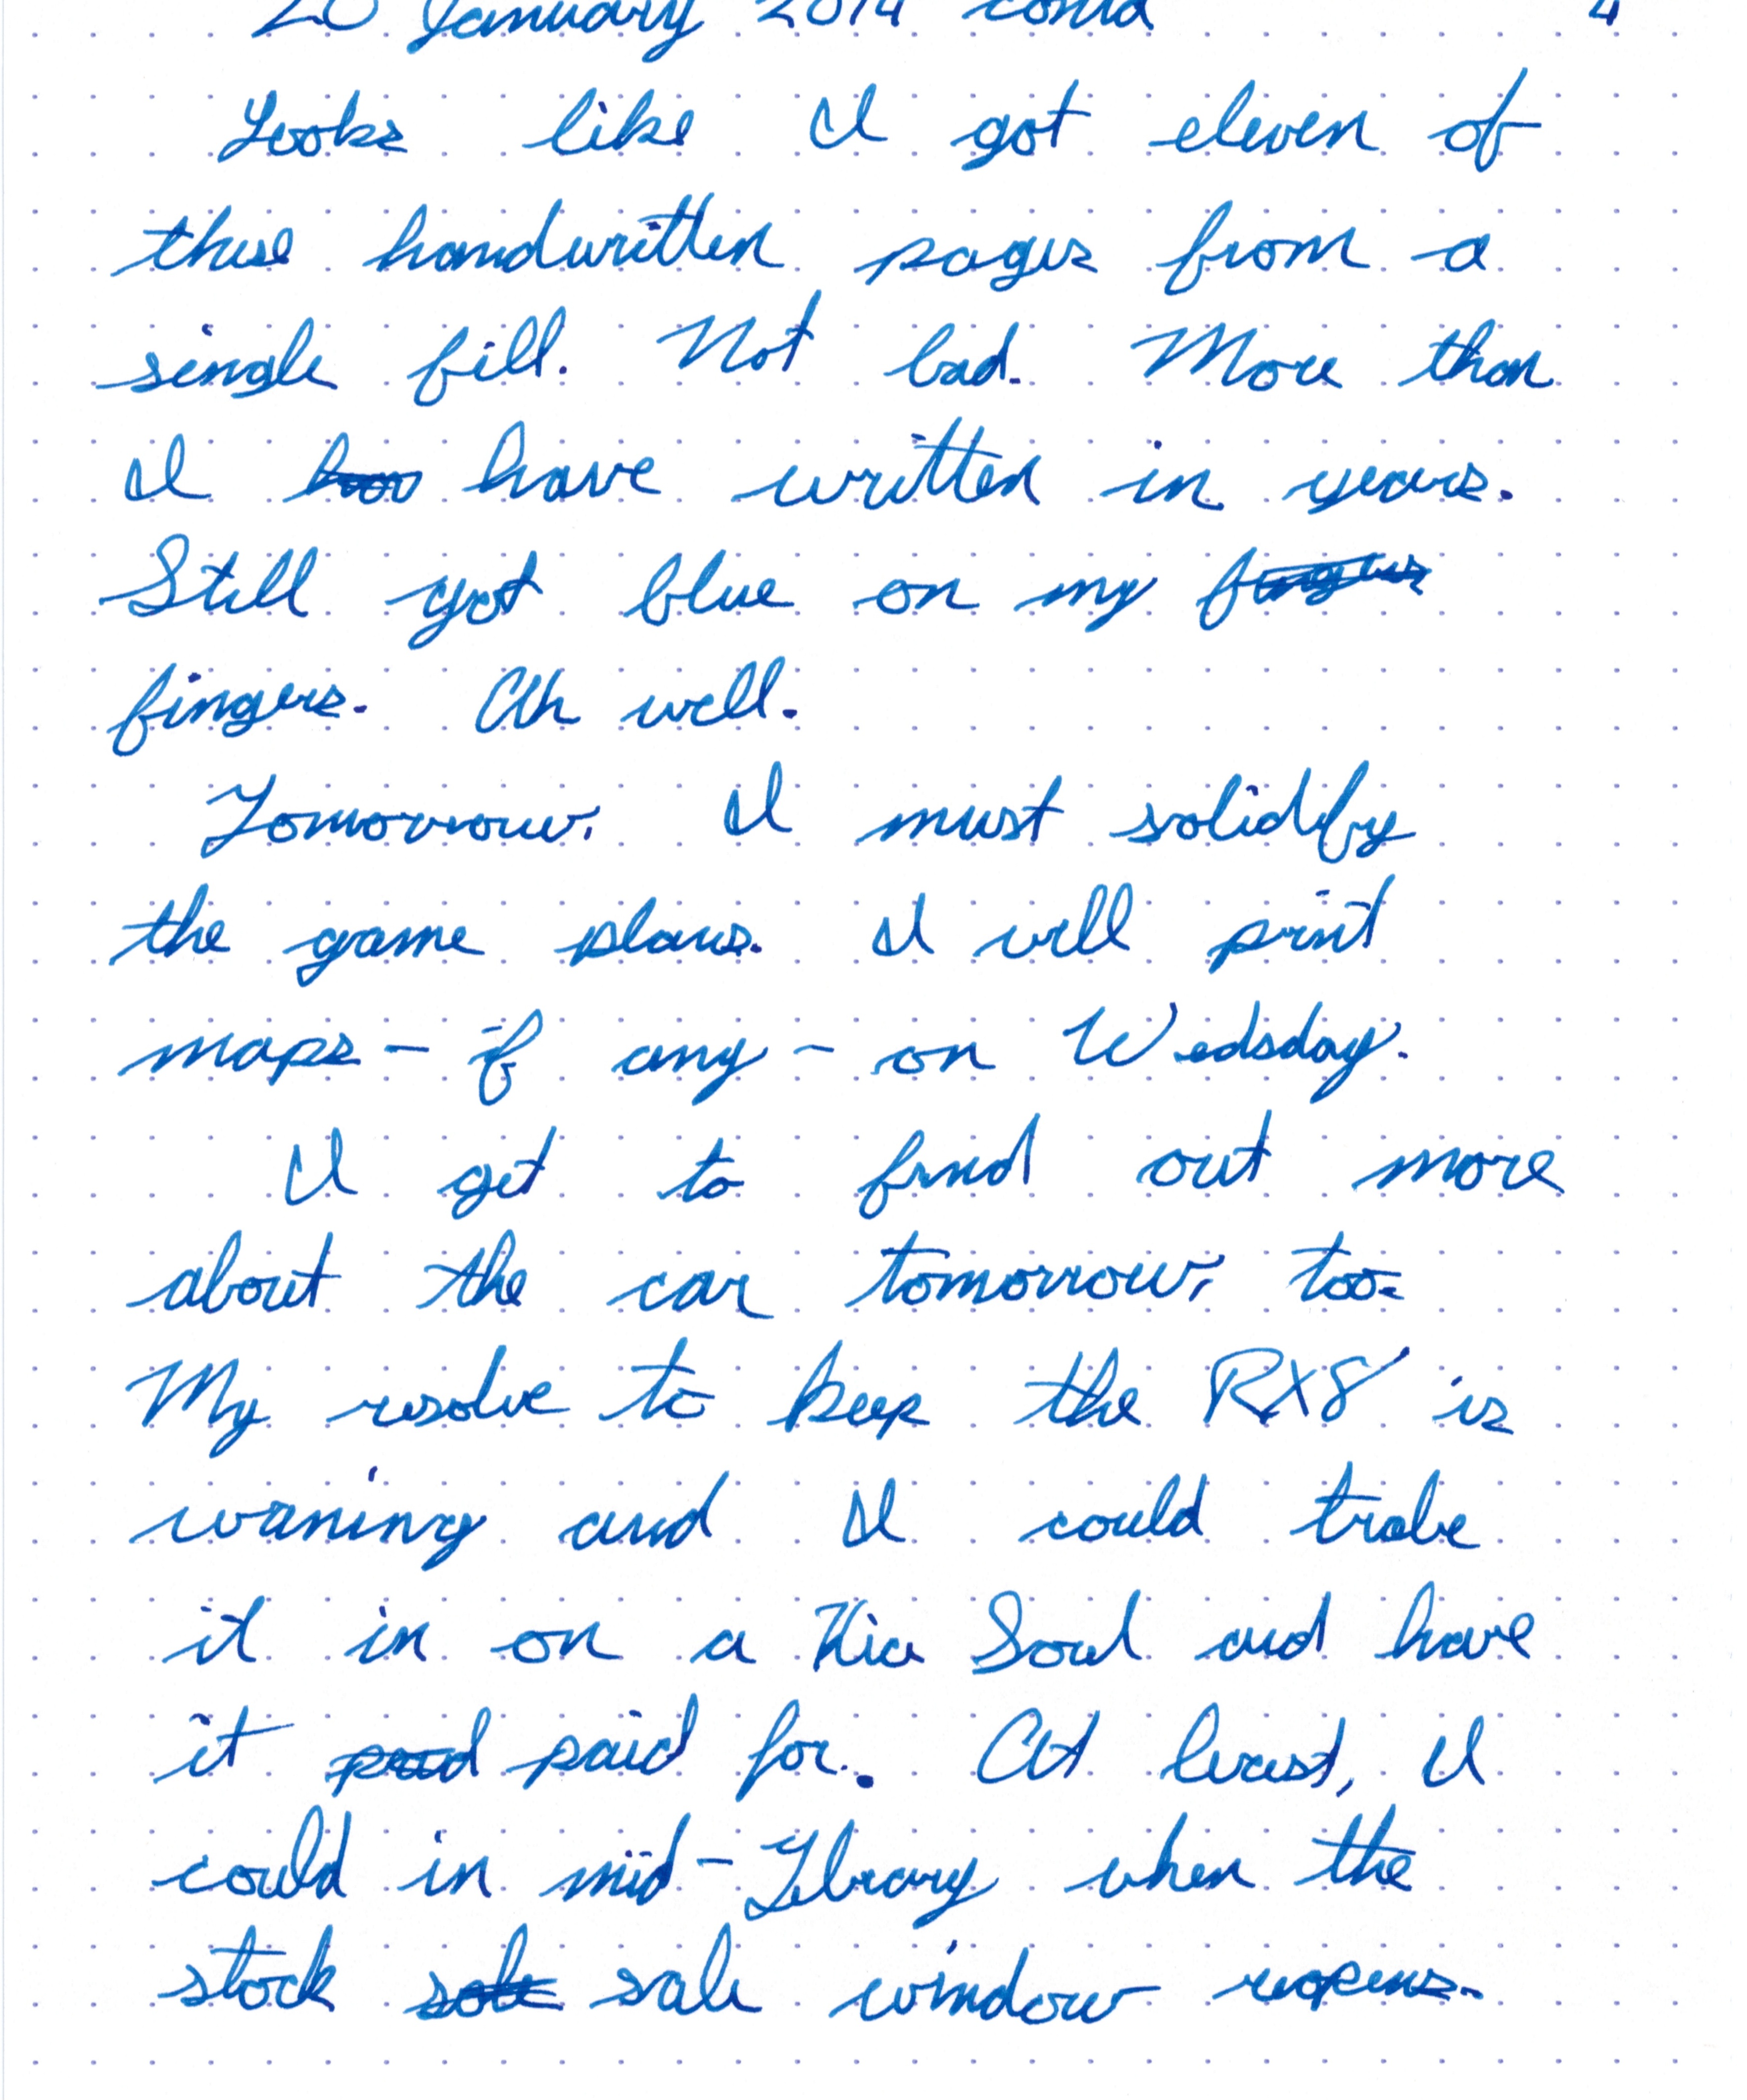 20 January 2014 contd 4
Looks like I got eleven of
these handwritten pages from a
single fill. Not bad. More than
I hav have written in years.
Still got blue on my fingers
fingers. Ah well.
Tomorrow. I must solidify
the game plans. I will print
maps – if any – on Wedsday.
I get to find out more
about the car tomorrow, too.
My resolve to keep the RX8 is
waning and I could trade
it in on a Kia Soul and have
it paid paid for. At least, I
could in mid-Febrary when the
stock sale sale window reopens.